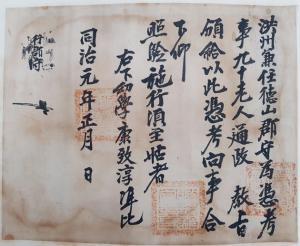 洪州兼任德山郡守爲憑考
事九十老人通政 敎旨
頒給以此憑考向事合
下仰
照驗施行須至帖者
右下幼學康致淳準此
同治元年正月 日
行郡守